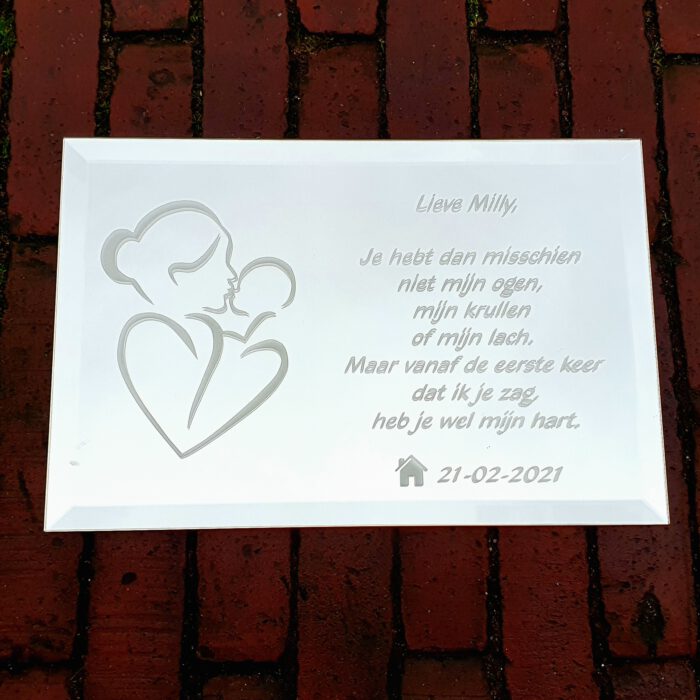 Lieve Milly,
Je hebt dan misschien
niet mijn ogen,
mijn krullen
of mijn lach.
Maar vanaf de eerste keer
dat ik je zag,
heb je wel mijn hart.
21-02-2021